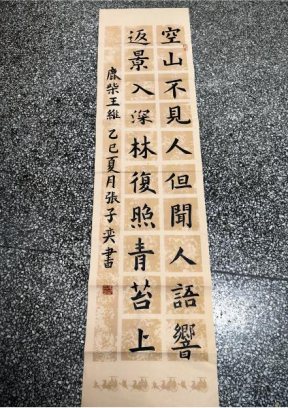 空山不見人但聞人語響
返景入深林復照青苔上
鹿柴王維 乙巳夏月張子奕書